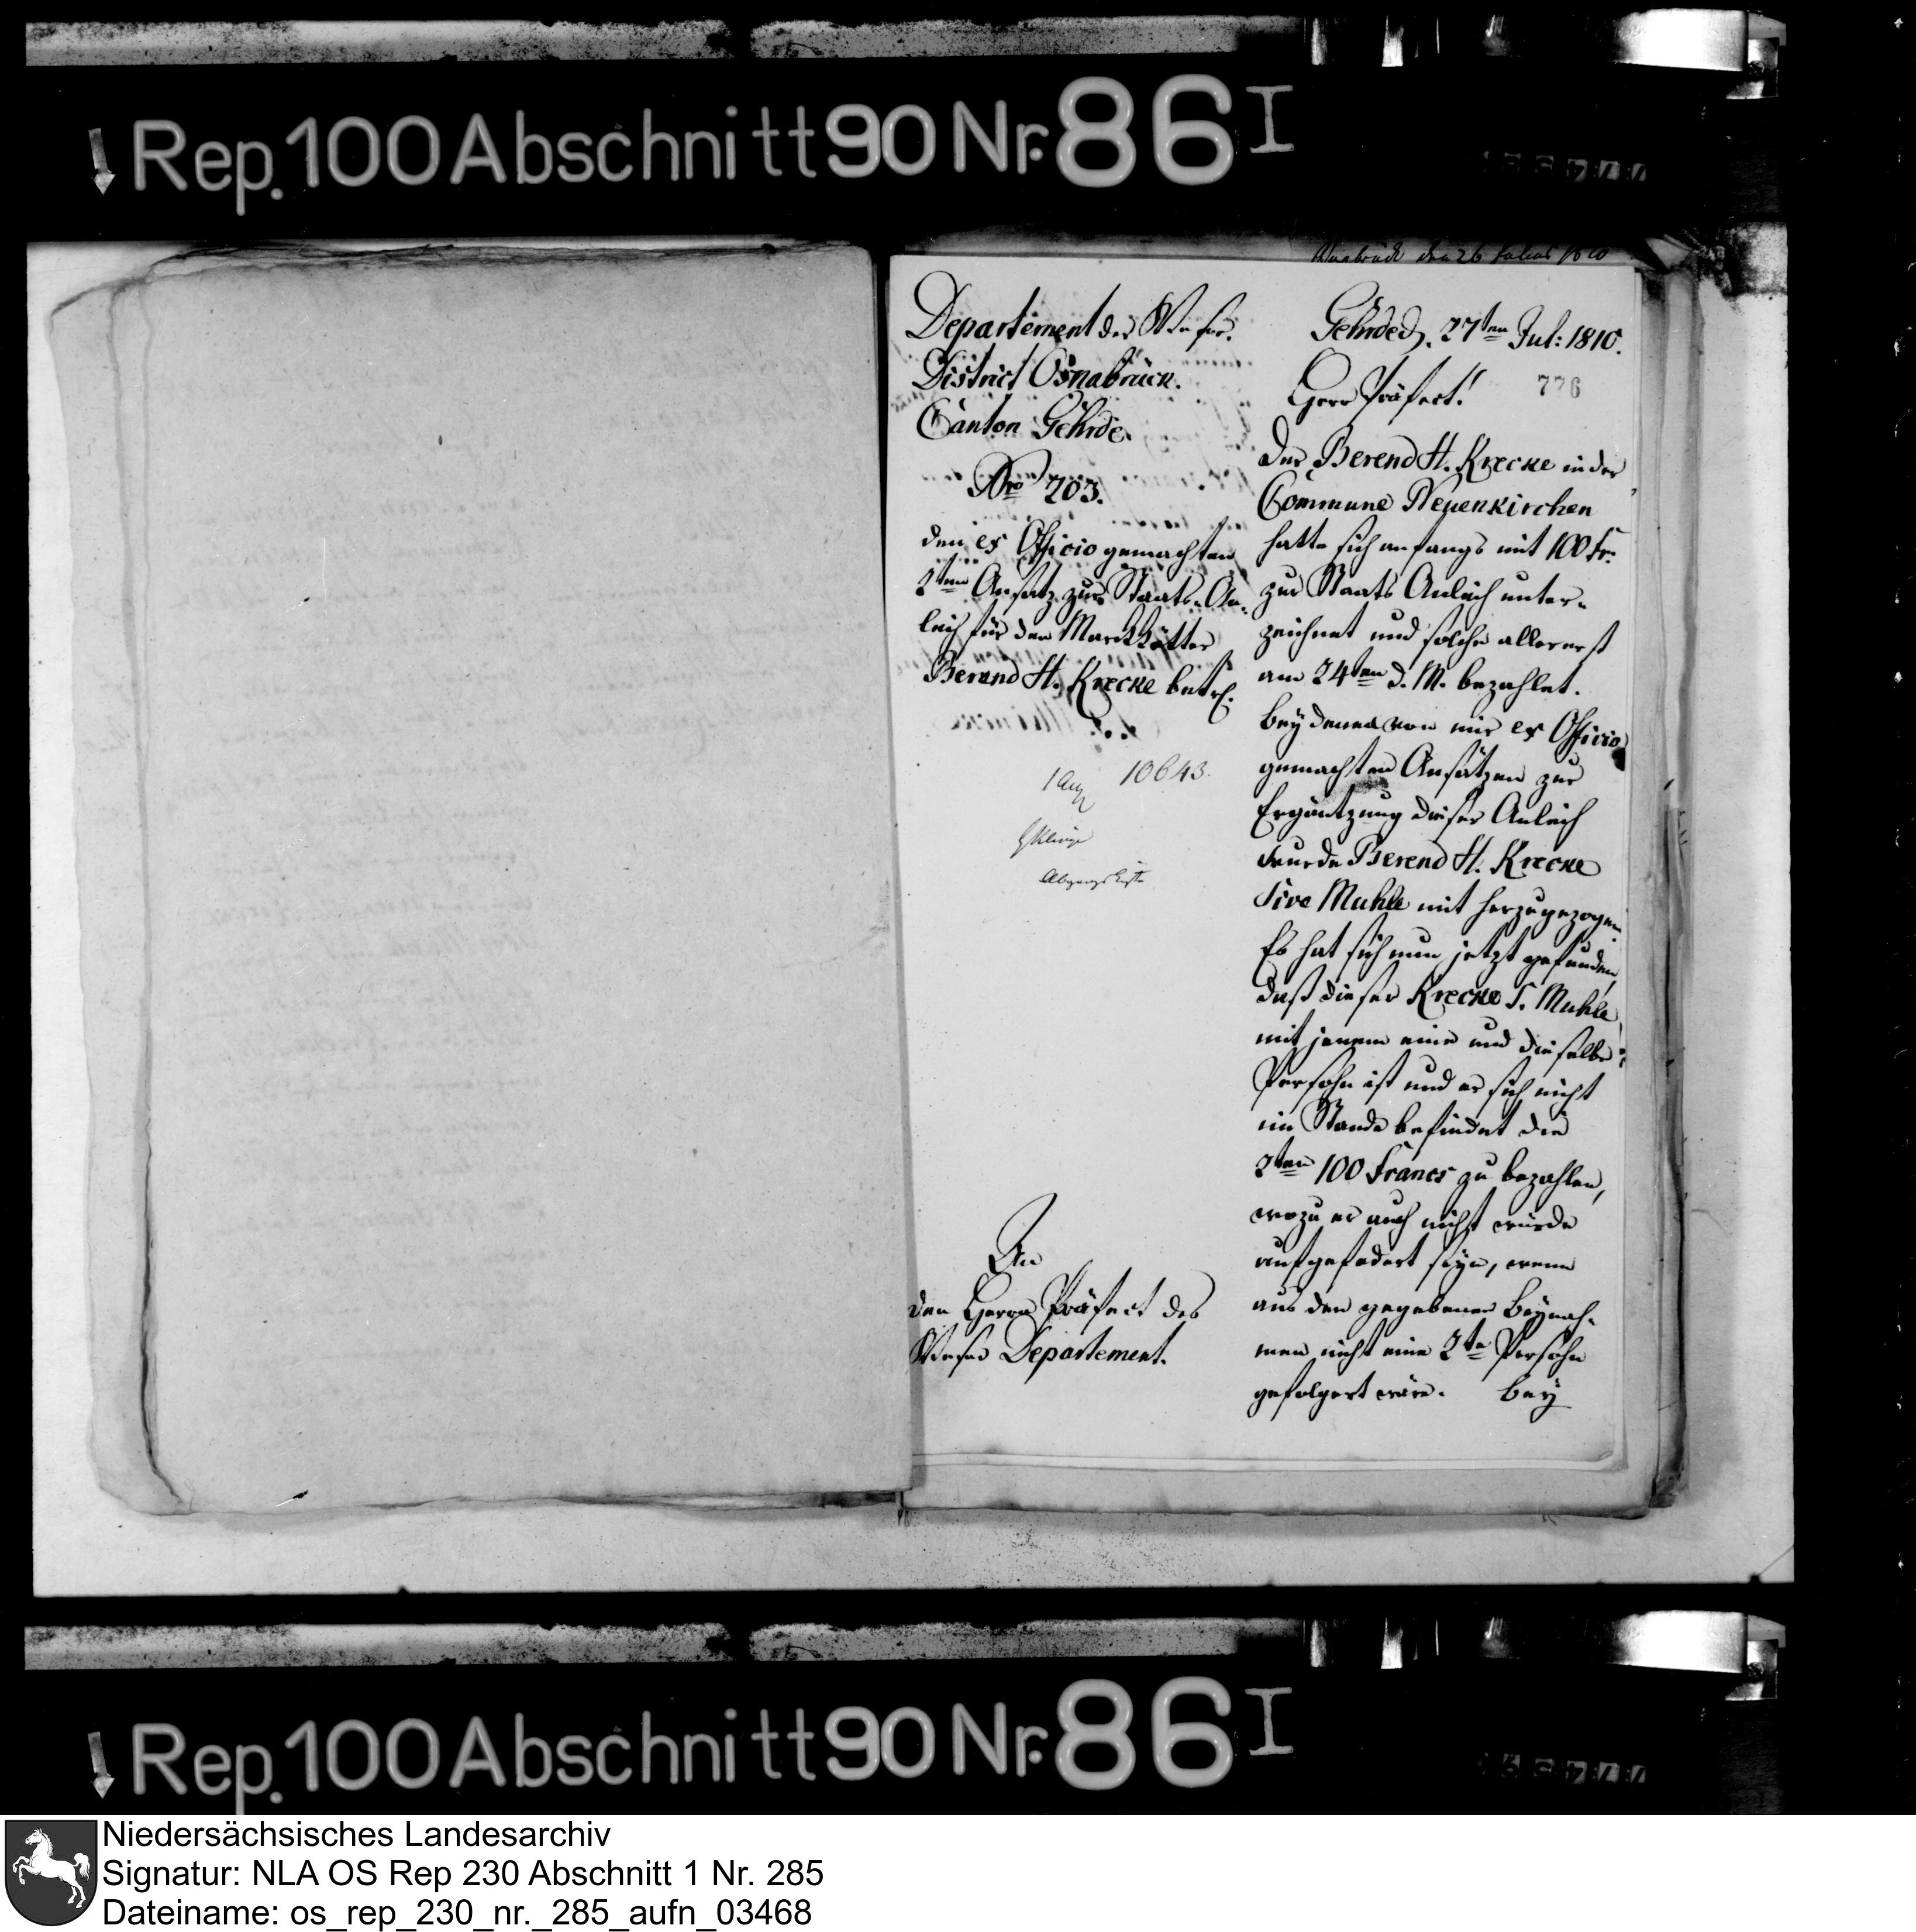 Rep. 100 Abschnitt 90 Nr. 86 I
Osnabrück den 26 Julius 1810
Departement der Weser.
District Osnabrück.
Canton Gehrde.
Nro 203.
den ex Officio gemachten
2ten Ansatz zur Staats-An-
leih für den Markkötter
Berend H. Krecke betrf.
1 Aug 10643.
Abgangsliste
An
den Herrn Präfect des
Weser Departement.
Gehrde d. 27ten Jul: 1810.
776
Herr Präfect!
Der Berend H. Krecke in der
Commune Neuenkirchen
hatte sich anfangs mit 100 Fr.
zur Staats Anleih unter-
zeichnet und solche allererst
am 24ten d. M. bezahlet.
Bey denen von mir ex Officio
gemachten Ansätzen zur
Ergäntzung dieser Anleih
wurde Berend H. Krecke
sive Muhle mit herzugezogen.
Es hat sich nun jetzt gefunden,
daß dieser Krecke s. Muhle
mit jenem eine und dieselbe
Persohn ist und er sich nicht
im Stande befindet die
2ten 100 Francs zu bezahlen,
wozu er auch nicht würde
aufgefodert seyn, wenn
aus den gegebenen Beynah-
men nicht eine 2te Persohn
gefolgert wäre. Bey
Rep. 100 Abschnitt 90 Nr. 86 I
Niedersächsisches Landesarchiv
Signatur: NLA OS Rep 230 Abschnitt 1 Nr. 285
Dateiname: os_rep_230_nr._285_aufn_03468